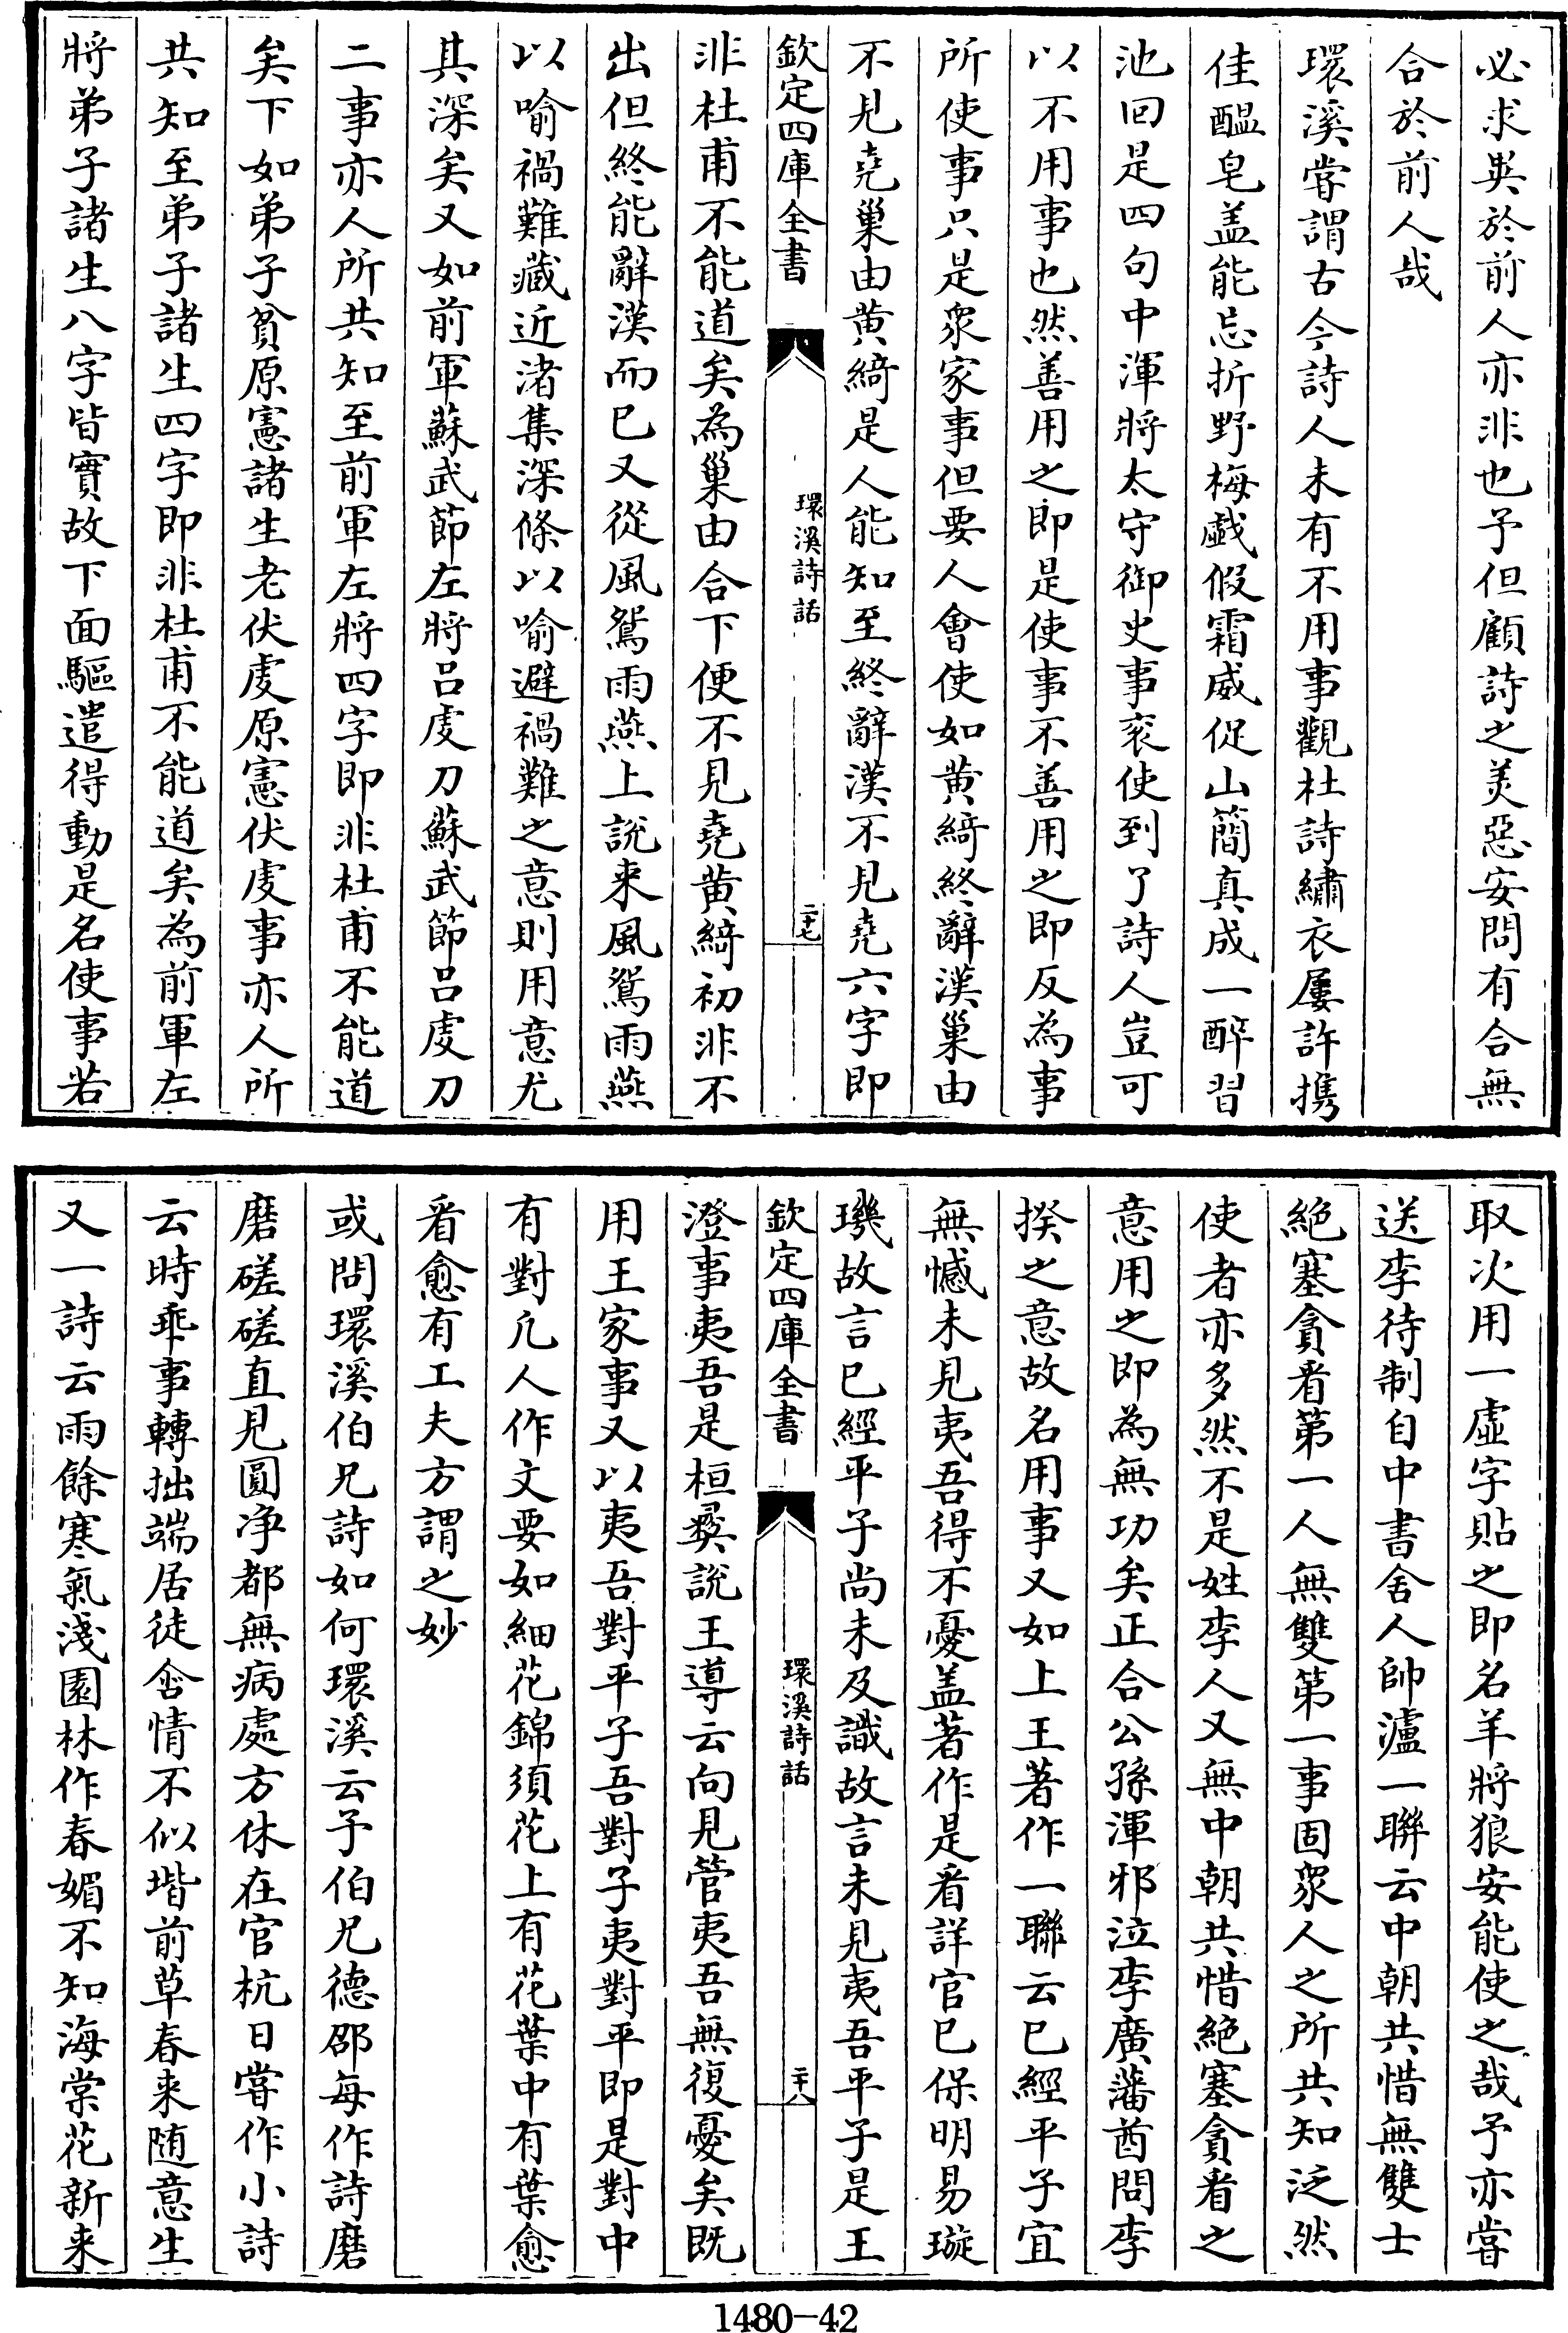 必求異於前人亦非也予但顧詩之美惡安問有合無
合於前人哉
環溪嘗謂古今詩人未有不用事觀杜詩繡衣屢許携
佳醖皂盖能忘折野梅戯假霜威促山簡真成一醉習
池回是四句中渾將太守御史事衮使到了詩人豈可
以不用事也然善用之即是使事不善用之即反為事
所使事只是衆家事但要人會使如黄綺終辭漢巢由
不見堯巢由黄綺是人能知至終辭漢不見堯六字即
欽定四庫全書
環溪詩話
二十七
非杜甫不能道矣為巢由合下便不見堯黄綺初非不
出但終能辭漢而已又從風鴛雨燕上說来風鴛雨燕
以喻禍難藏近渚集深條以喻避禍難之意則用意尤
其深矣又如前軍蘇武節左將呂虔刀蘇武節呂虔刀
二事亦人所共知至前軍左將四字即非杜甫不能道
矣下如弟子貧原憲諸生老伏虔原憲伏虔事亦人所
共知至弟子諸生四字即非杜甫不能道矣為前軍左
將弟子諸生八字皆實故下面驅遣得動是名使事若
取次用一虛字貼之即名羊將狼安能使之哉予亦嘗
送李待制自中書舍人帥瀘一聯云中朝共惜無雙士
絶塞貪看第一人無雙第一事固衆人之所共知泛然
使者亦多然不是姓李人又無中朝共惜絶塞貪看之
意用之即為無功矣正合公孫渾邪泣李廣藩酋問李
揆之意故名用事又如上王著作一聯云已經平子宜
無憾未見夷吾得不憂盖著作是看詳官已保明易璇
璣故言已經平子尚未及識故言未見夷吾平子是王
欽定四庫全書
環溪詩話
二十八
澄事夷吾是桓彜說王導云向見管夷吾無復憂矣既
用王家事又以夷吾對平子吾對子夷對平即是對中
有對凡人作文要如細花錦須花上有花葉中有葉愈
看愈有工夫方謂之妙
或問環溪伯兄詩如何環溪云予伯兄德邵每作詩磨
磨磋磋直見圓净都無病處方休在官杭日嘗作小詩
云時乖事轉拙端居徒含情不似堦前草春来随意生
又一詩云雨餘寒氣淺園林作春媚不知海棠花新来
1480-42